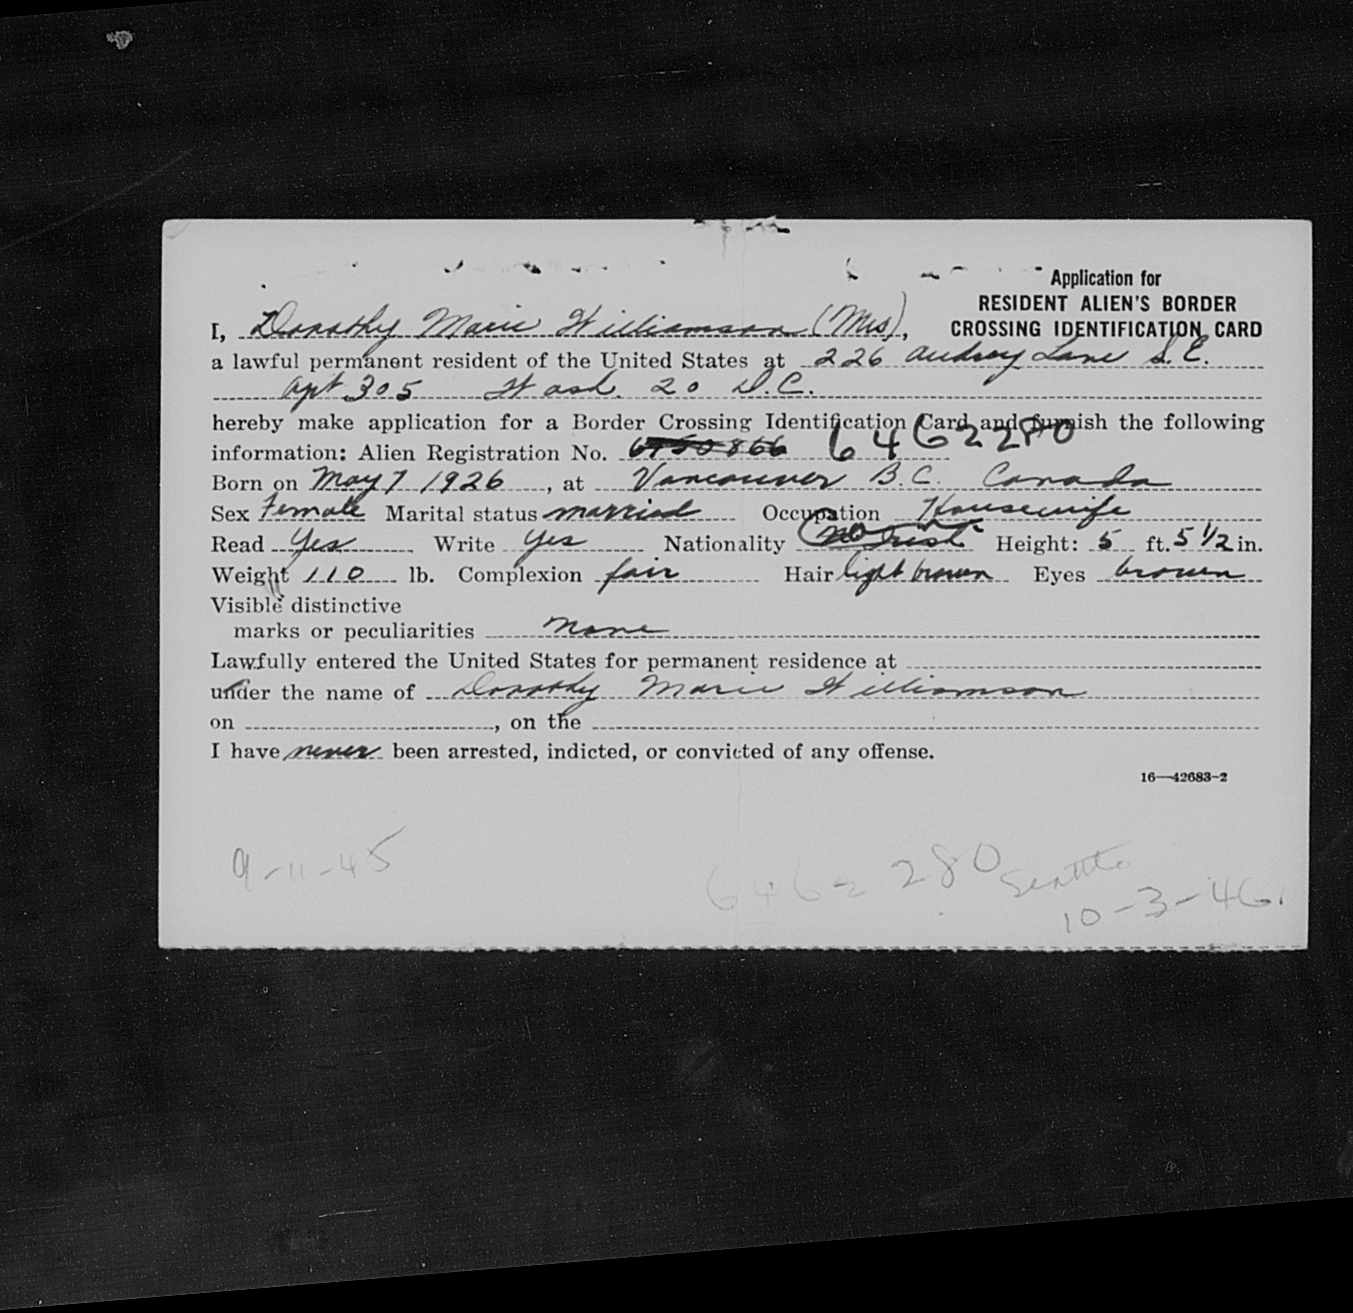 Application for
RESIDENT ALIEN'S BORDER
CROSSING IDENTIFICATION CARD
I, Dorothy Marie Williamson (Mrs),
a lawful permanent resident of the United States at 226 Audrey Lane S.E.
Apt 305 Wash. 20 D.C.
hereby make application for a Border Crossing Identification Card and furnish the following
information: Alien Registration No. 6462280
Born on May 7 1926, at Vancouver B.C. Canada
Sex Female Marital status married Occupation Housewife
Read Yes Write Yes Nationality Irish Height: 5 ft. 5 1/2 in.
Weight 110 lb. Complexion fair Hair light brown Eyes brown
Visible distinctive
marks or peculiarities None
Lawfully entered the United States for permanent residence at
under the name of Dorothy Marie Williamson
on , on the
I have never been arrested, indicted, or convicted of any offense.
16—42683-2
9-11-45
6462280 Seattle
10-3-46.